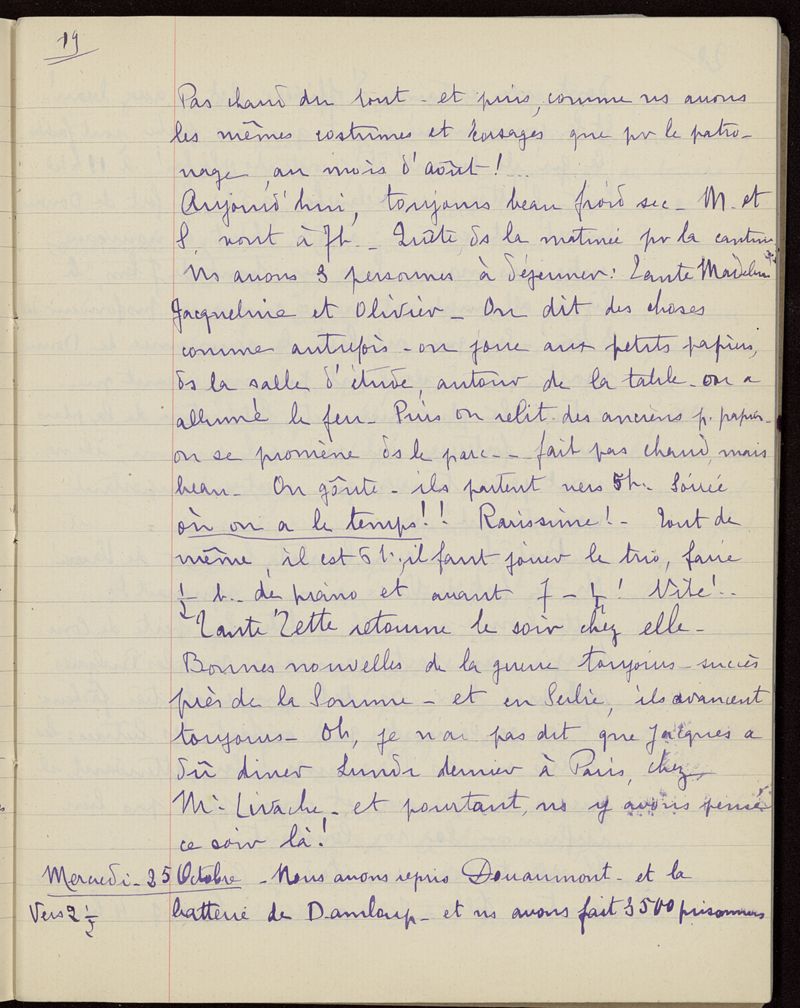 19
Pas chaud du tout - et puis, comme ns avons
les mêmes costumes et corsages que pr le patro-
nage, au mois d'août !...
Aujourd'hui, toujours beau froid sec - M. et
S. vont à 7h. - Quête ds la matinée pr la cantine
Ns avons 3 personnes à déjeuner : Tante Madeleine
Jacqueline et Olivier - On dit des choses
comme autrefois - on joue aux petits papiers,
ds la salle d'étude, autour de la table - on a
allumé le feu - Puis on relit des anciens p. papiers -
on se promène ds le parc - - fait pas chaud, mais
beau - On goûte - ils partent vers 5h. Soirée
où on a le temps !! Rarissime ! - Tout de
même, il est 5h, il faut jouer le trio, faire
1/2 h. de piano et avant 7 - 1/2 ! Vite ! -
Tante Zette retourne le soir chez elle -
Bonnes nouvelles de la guerre toujours - succès
près de la Somme - et en Serbie, ils avancent
toujours - Oh, je n'ai pas dit que Jacques a
dû diner Lundi dernier à Paris, chez
Mr Livache - et pourtant, ns y avons pensé
ce soir là !
Mercredi - 25 Octobre - Nous avons repris Douaumont - et la
Vers 2 1/2 batterie de Damloup - et ns avons fait 3500 prisonniers